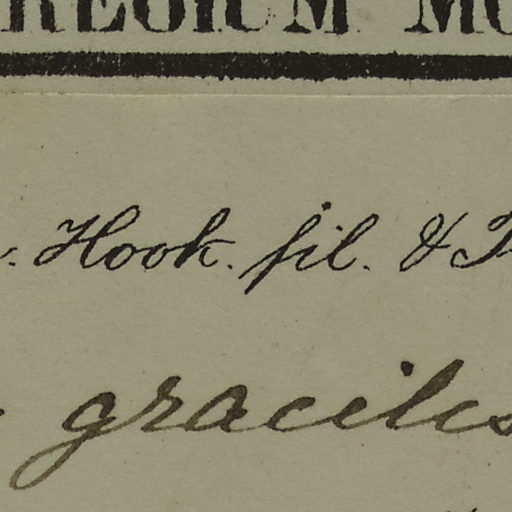 REGIUM MO
. Hook. fil. & T
gracilis